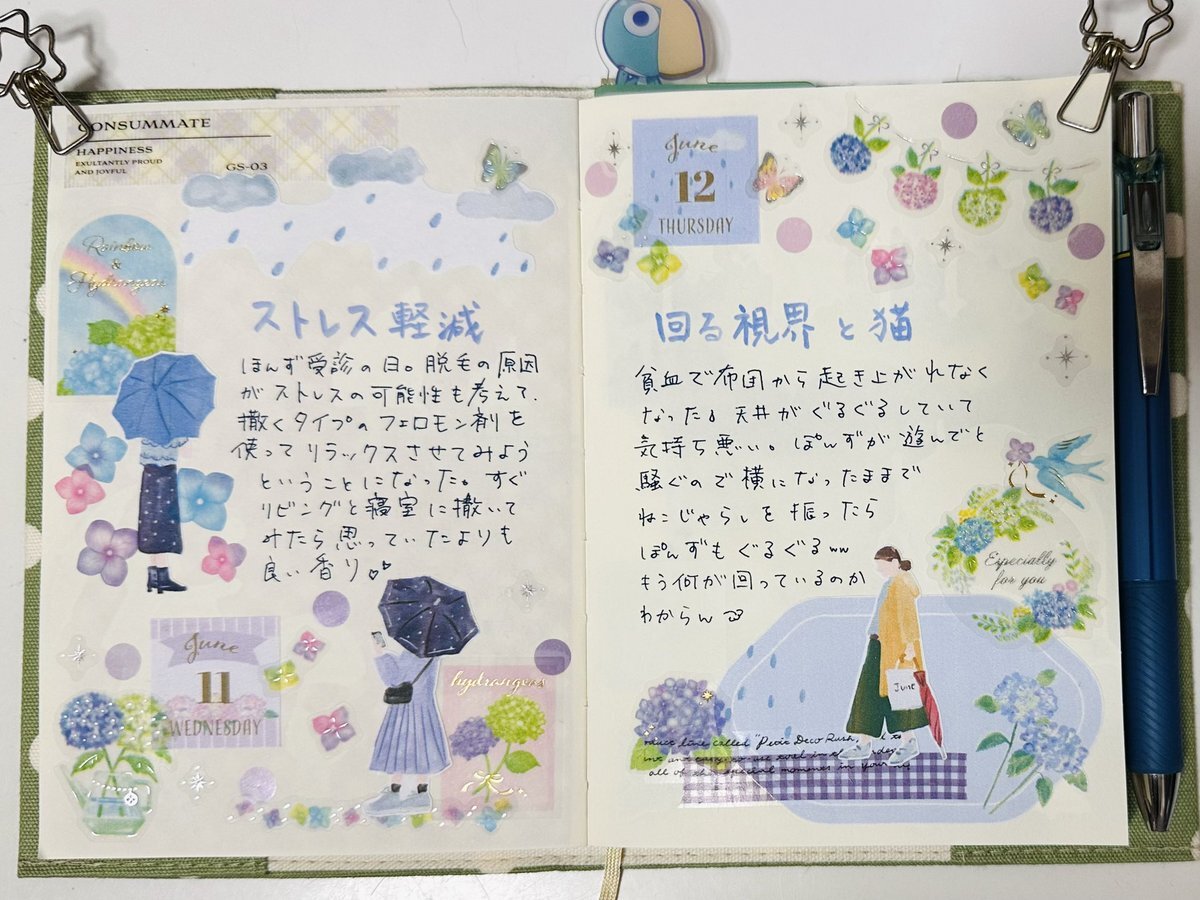 CONSUMMATE
HAPPINESS
EXULTANTLY PROUD
AND JOYFUL
GS-03
Rainbow
&
Hydrangeas
ストレス軽減
ぽんず受診の日。脱毛の原因
がストレスの可能性も考えて、
撒くタイプのフェロモン剤を
使ってリラックスさせてみよう
ということになった。すぐ
リビングと寝室に撒いて
みたら思っていたよりも
良い香り♡♡
June
11
WEDNESDAY
hydrangeas
June
12
THURSDAY
回る視界と猫
貧血で布団から起き上がれなく
なった。天井がぐるぐるしていて
気持ち悪い。ぽんずが遊んでと
騒ぐので横になったままで
ねこじゃらしを振ったら
ぽんずもぐるぐるww
もう何が回っているのか
わからん
Especially
for you
June
must line called "Pixie Deco Rush,
all of the special moments in your